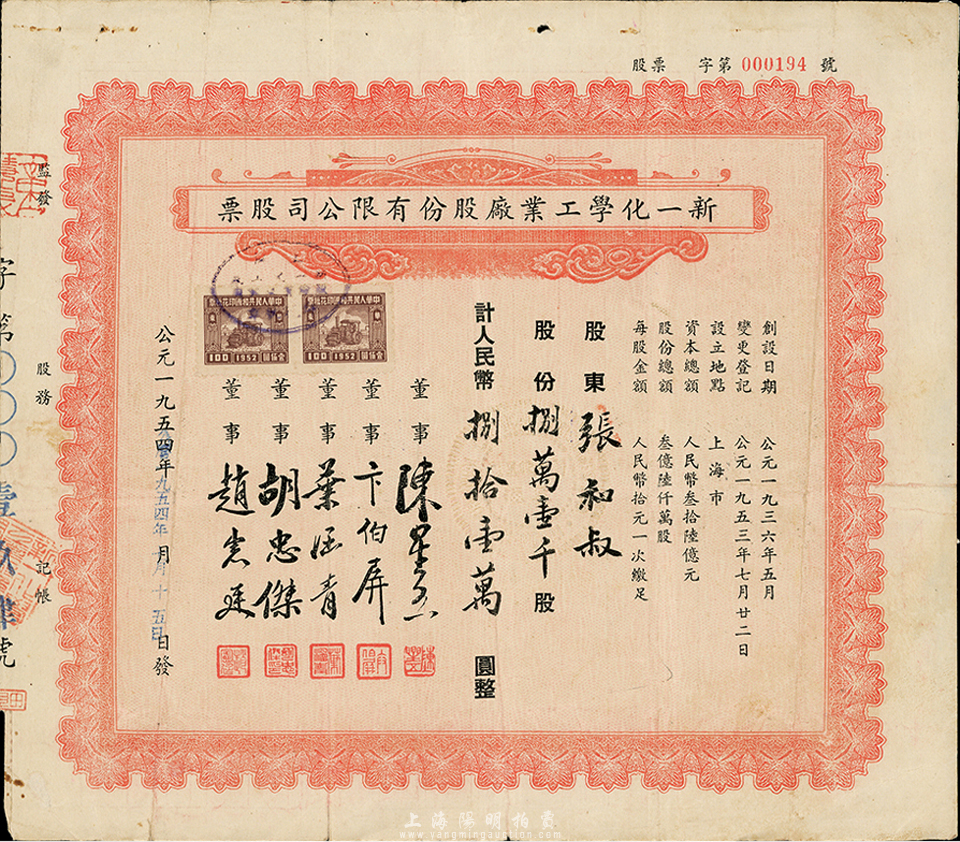 股票 字第 000194 號
新一化學工業廠股份有限公司股票
創設日期 公元一九三六年五月
變更登記 公元一九五三年七月廿二日
設立地點 上海市
資本總額 人民幣叁拾陸億元
股份總額 叁億陸仟萬股
每股金額 人民幣拾元一次繳足
股東 張和叔
股份 捌萬壹千股
計人民幣 捌拾壹萬 圓整
董事 陳
董事 卞伯屏
董事 葉涵青
董事 胡忠傑
董事 趙
中華人民共和國印花稅票
100 1952 壹佰圓
中華人民共和國印花稅票
100 1952 壹佰圓
公元一九五四年 月 十五日發
監發
股務 記帳
字第〇〇〇壹玖肆號
上海陽明拍賣
www.yangmingauction.com